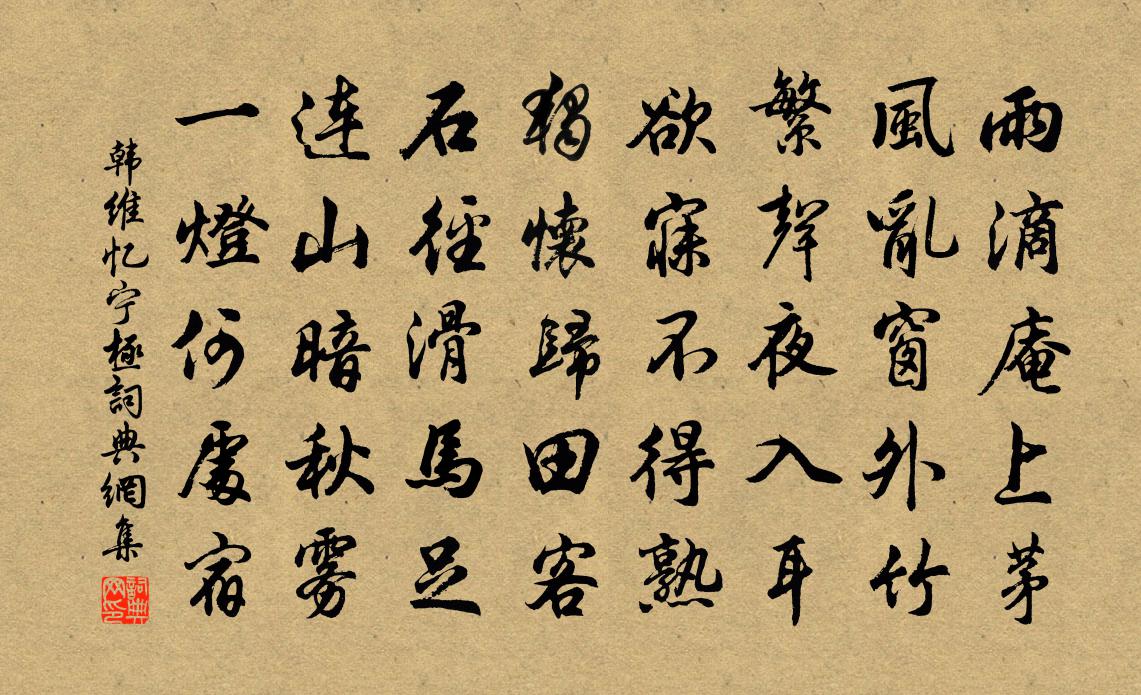 雨滴庵上茅
風亂窗外竹
繁聲夜入耳
欲寐不得熟
獨懷歸田客
石徑滑馬足
連山暗秋雾
一燈何處宿
韩维忆宁極詞典網集
詞典网印